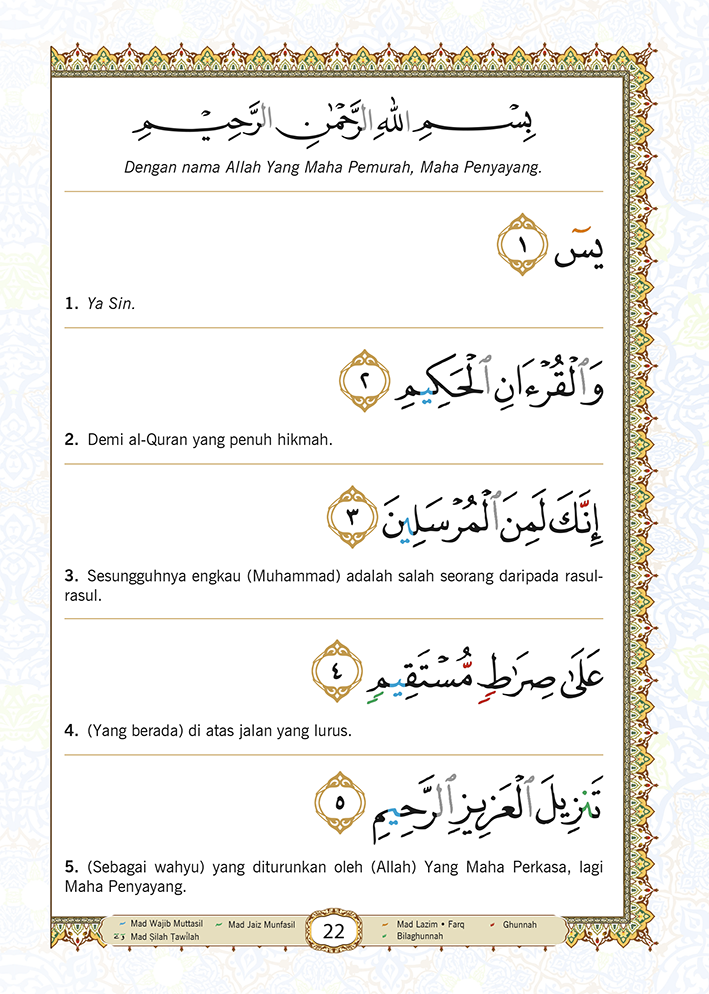 بِسْمِ ٱللَّهِ ٱلرَّحْمَٰنِ ٱلرَّحِيمِ
Dengan nama Allah Yang Maha Pemurah, Maha Penyayang.
يسٓ ١
1. Ya Sin.
وَٱلْقُرْءَانِ ٱلْحَكِيمِ ٢
2. Demi al-Quran yang penuh hikmah.
إِنَّكَ لَمِنَ ٱلْمُرْسَلِينَ ٣
3. Sesungguhnya engkau (Muhammad) adalah salah seorang daripada rasul-
rasul.
عَلَىٰ صِرَٰطٍ مُّسْتَقِيمٍ ٤
4. (Yang berada) di atas jalan yang lurus.
تَنزِيلَ ٱلْعَزِيزِ ٱلرَّحِيمِ ٥
5. (Sebagai wahyu) yang diturunkan oleh (Allah) Yang Maha Perkasa, lagi
Maha Penyayang.
Mad Wajib Muttasil Mad Jaiz Munfasil 22 Mad Lazim • Farq Ghunnah
Mad Ṣilah Ṭawīlah Bilaghunnah